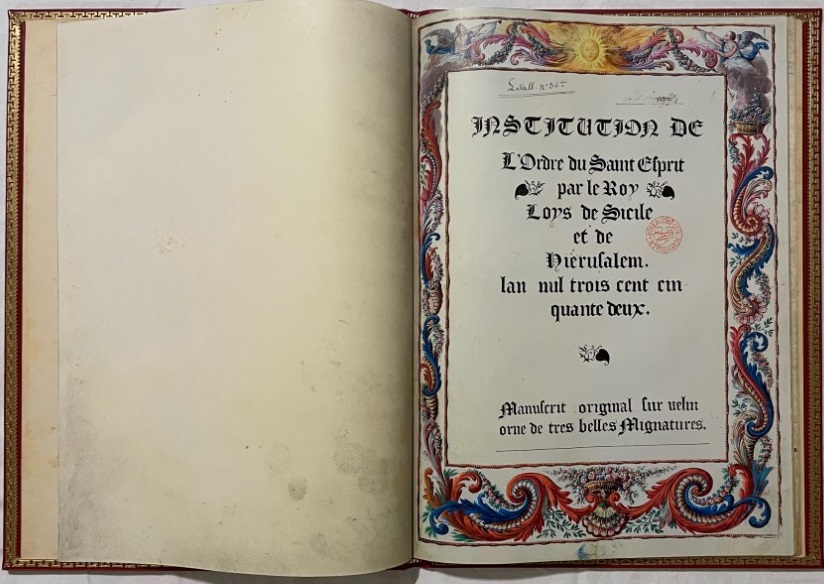 INSTITUTION DE
L'Ordre du Saint Esprit
par le Roy
Loys de Sicile
et de
Hierusalem.
lan mil trois cent cin
quante deux.
Manuscrit original sur uelin
orne de tres belles Mignatures.